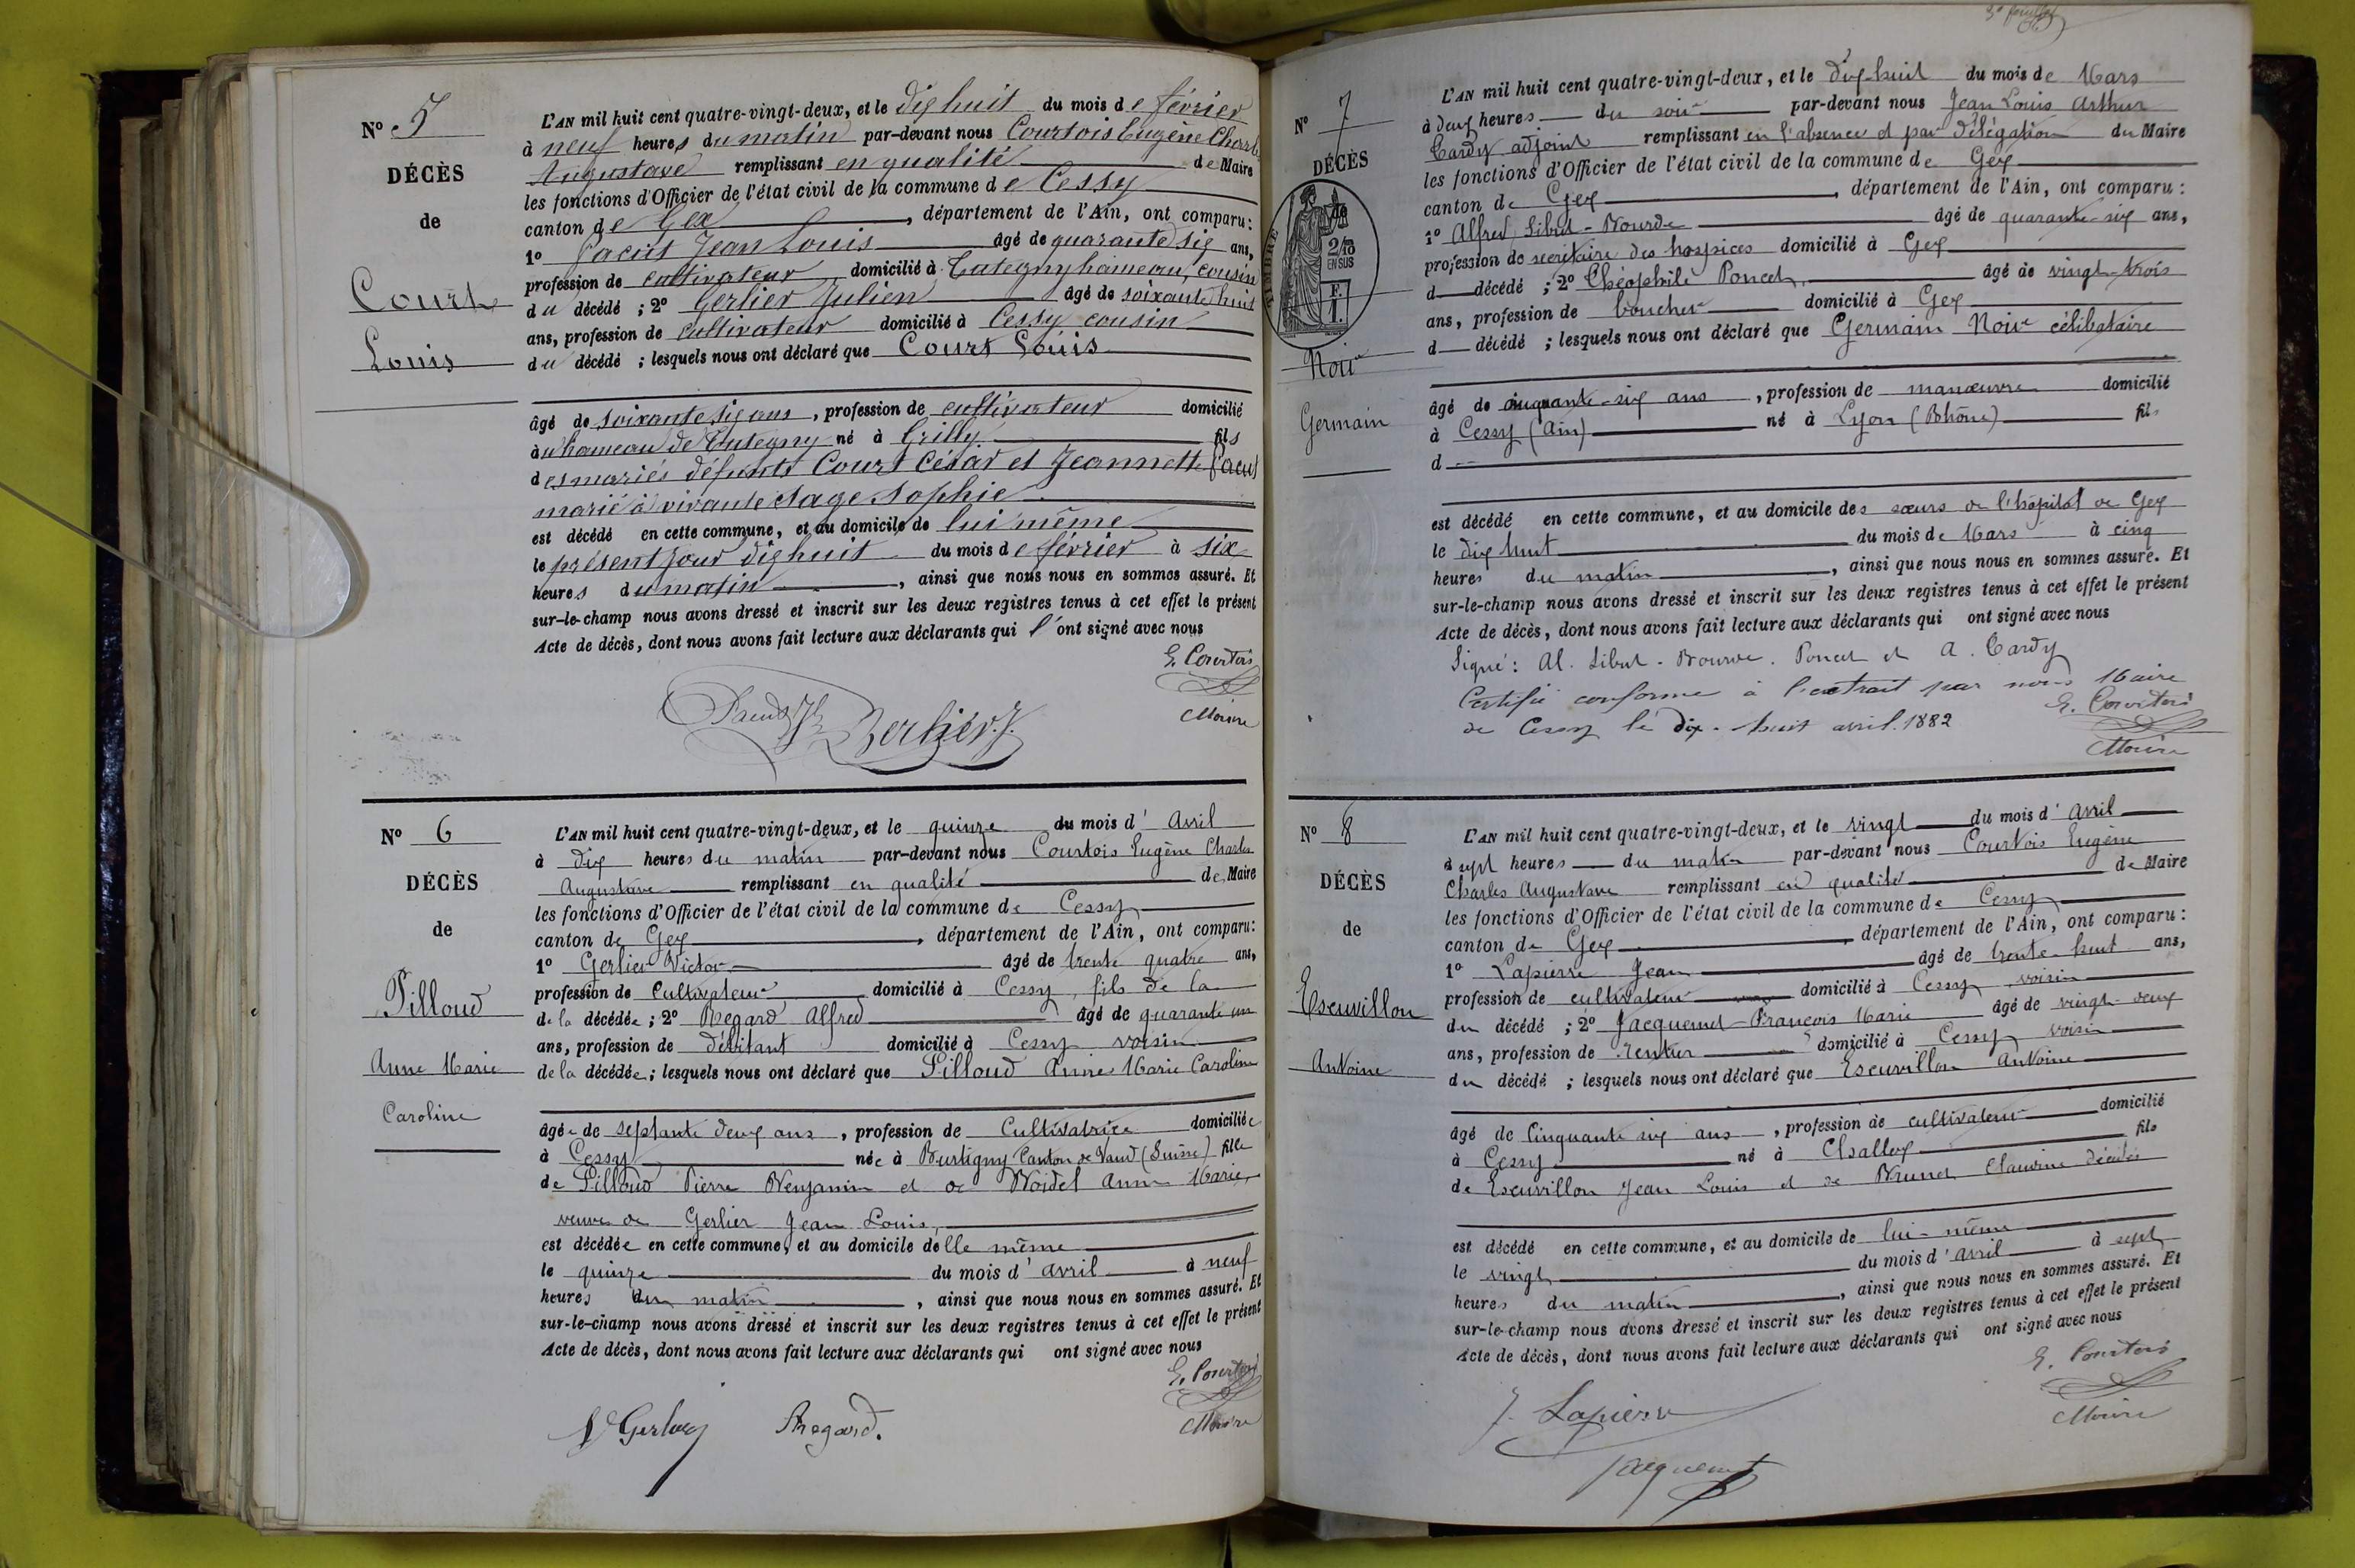 Nº 5
DÉCÈS
de
Court
Louis
L'AN mil huit cent quatre-vingt-deux, et le dix huit du mois de février
à neuf heures du matin par-devant nous Courtois Eugène Charles
Augustave remplissant en qualité de Maire
les fonctions d'Officier de l'état civil de la commune de Cessy
canton de Gex, département de l'Ain, ont comparu:
1º Jean Louis âgé de quarante six ans,
profession de cultivateur domicilié à hameau, cousin
du décédé ; 2º Gerlier Julien âgé de soixante huit
ans, profession de cultivateur domicilié à Cessy cousin
du décédé ; lesquels nous ont déclaré que Court Louis
âgé de soixante six ans, profession de cultivateur domicilié
au hameau de né à Grilly fils
des mariés défunts Court César et Jeannette
marié à vivante Sage Sophie
est décédé en cette commune, et au domicile de lui même
le présent jour dix huit du mois de février à six
heures du matin, ainsi que nous nous en sommes assuré. Et
sur-le-champ nous avons dressé et inscrit sur les deux registres tenus à cet effet le présent
Acte de décès, dont nous avons fait lecture aux déclarants qui l'ont signé avec nous
E. Courtois
Maire
Nº 6
DÉCÈS
de
Pilloud
Anne Marie
Caroline
L'AN mil huit cent quatre-vingt-deux, et le quinze du mois d'Avril
à dix heures du matin par-devant nous Courtois Eugène Charles
Augustave remplissant en qualité de Maire
les fonctions d'Officier de l'état civil de la commune de Cessy
canton de Gex, département de l'Ain, ont comparu:
1º Gerlier Victor âgé de trente quatre ans,
profession de Cultivateur domicilié à Cessy, fils de la
de la décédée ; 2º Regard Alfred âgé de quarante un
ans, profession de débitant domicilié à Cessy voisin
de la décédée ; lesquels nous ont déclaré que Pilloud Anne Marie Caroline
âgée de septante deux ans, profession de Cultivatrice domiciliée
à Cessy née à Burtigny Canton de Vaud (Suisse) fille
de Pilloud Pierre Benjamin et de Anne Marie,
veuve de Gerlier Jean Louis,
est décédée en cette commune, et au domicile delle même
le quinze du mois d'avril à neuf
heures du matin, ainsi que nous nous en sommes assuré. Et
sur-le-champ nous avons dressé et inscrit sur les deux registres tenus à cet effet le présent
Acte de décès, dont nous avons fait lecture aux déclarants qui ont signé avec nous
E. Courtois
Maire
V Gerlier Regard.
Nº 7
DÉCÈS
de
TIMBRE
2/10
EN SUS
F.
1.
Noir
Germain
L'AN mil huit cent quatre-vingt-deux, et le dix-huit du mois de Mars
à deux heures du soir par-devant nous Jean Louis Arthur
Cardy adjoint remplissant en l'absence et par délégation du Maire
les fonctions d'Officier de l'état civil de la commune de Gex
canton de Gex, département de l'Ain, ont comparu:
1º Alfred Libut-Bourde âgé de quarante-six ans,
profession de secrétaire des hospices domicilié à Gex
d décédé ; 2º Théophile Poncet, âgé de vingt-trois
ans, profession de boucher domicilié à Gex
d décédé ; lesquels nous ont déclaré que Germain Noir célibataire
âgé de cinquante-six ans, profession de manœuvre domicilié
à Cessy (Ain) né à Lyon (Rhône) fils
d
est décédé en cette commune, et au domicile des sœurs de l'hôpital de Gex
le dix huit du mois de Mars à cinq
heures du matin, ainsi que nous nous en sommes assuré. Et
sur-le-champ nous avons dressé et inscrit sur les deux registres tenus à cet effet le présent
Acte de décès, dont nous avons fait lecture aux déclarants qui ont signé avec nous
Signé: Al. Libut-Bourde. Poncet et A. Cardy
Certifié conforme à l'extrait par nous Maire
de Cessy le dix-huit avril 1882
E. Courtois
Maire
Nº 8
DÉCÈS
de
Escuvillon
Antoine
L'AN mil huit cent quatre-vingt-deux, et le vingt du mois d'Avril
à sept heures du matin par-devant nous Courtois Eugène
Charles Augustave remplissant en qualité de Maire
les fonctions d'Officier de l'état civil de la commune de Cessy
canton de Gex, département de l'Ain, ont comparu:
1º Lapierre Jean âgé de trente-huit ans,
profession de cultivateur domicilié à Cessy voisin
du décédé ; 2º Jacquemet-François Marie âgé de vingt-deux
ans, profession de rentier domicilié à Cessy voisin
du décédé ; lesquels nous ont déclaré que Escuvillon Antoine
âgé de Cinquante six ans, profession de cultivateur domicilié
à Cessy né à Challex fils
de Escuvillon Jean Louis et de Brunet Claudine décédés
est décédé en cette commune, et au domicile de lui-même
le vingt du mois d'avril à sept
heures du matin, ainsi que nous nous en sommes assuré. Et
sur-le-champ nous avons dressé et inscrit sur les deux registres tenus à cet effet le présent
Acte de décès, dont nous avons fait lecture aux déclarants qui ont signé avec nous
E. Courtois
Maire
J. Lapierre
Jacquemet